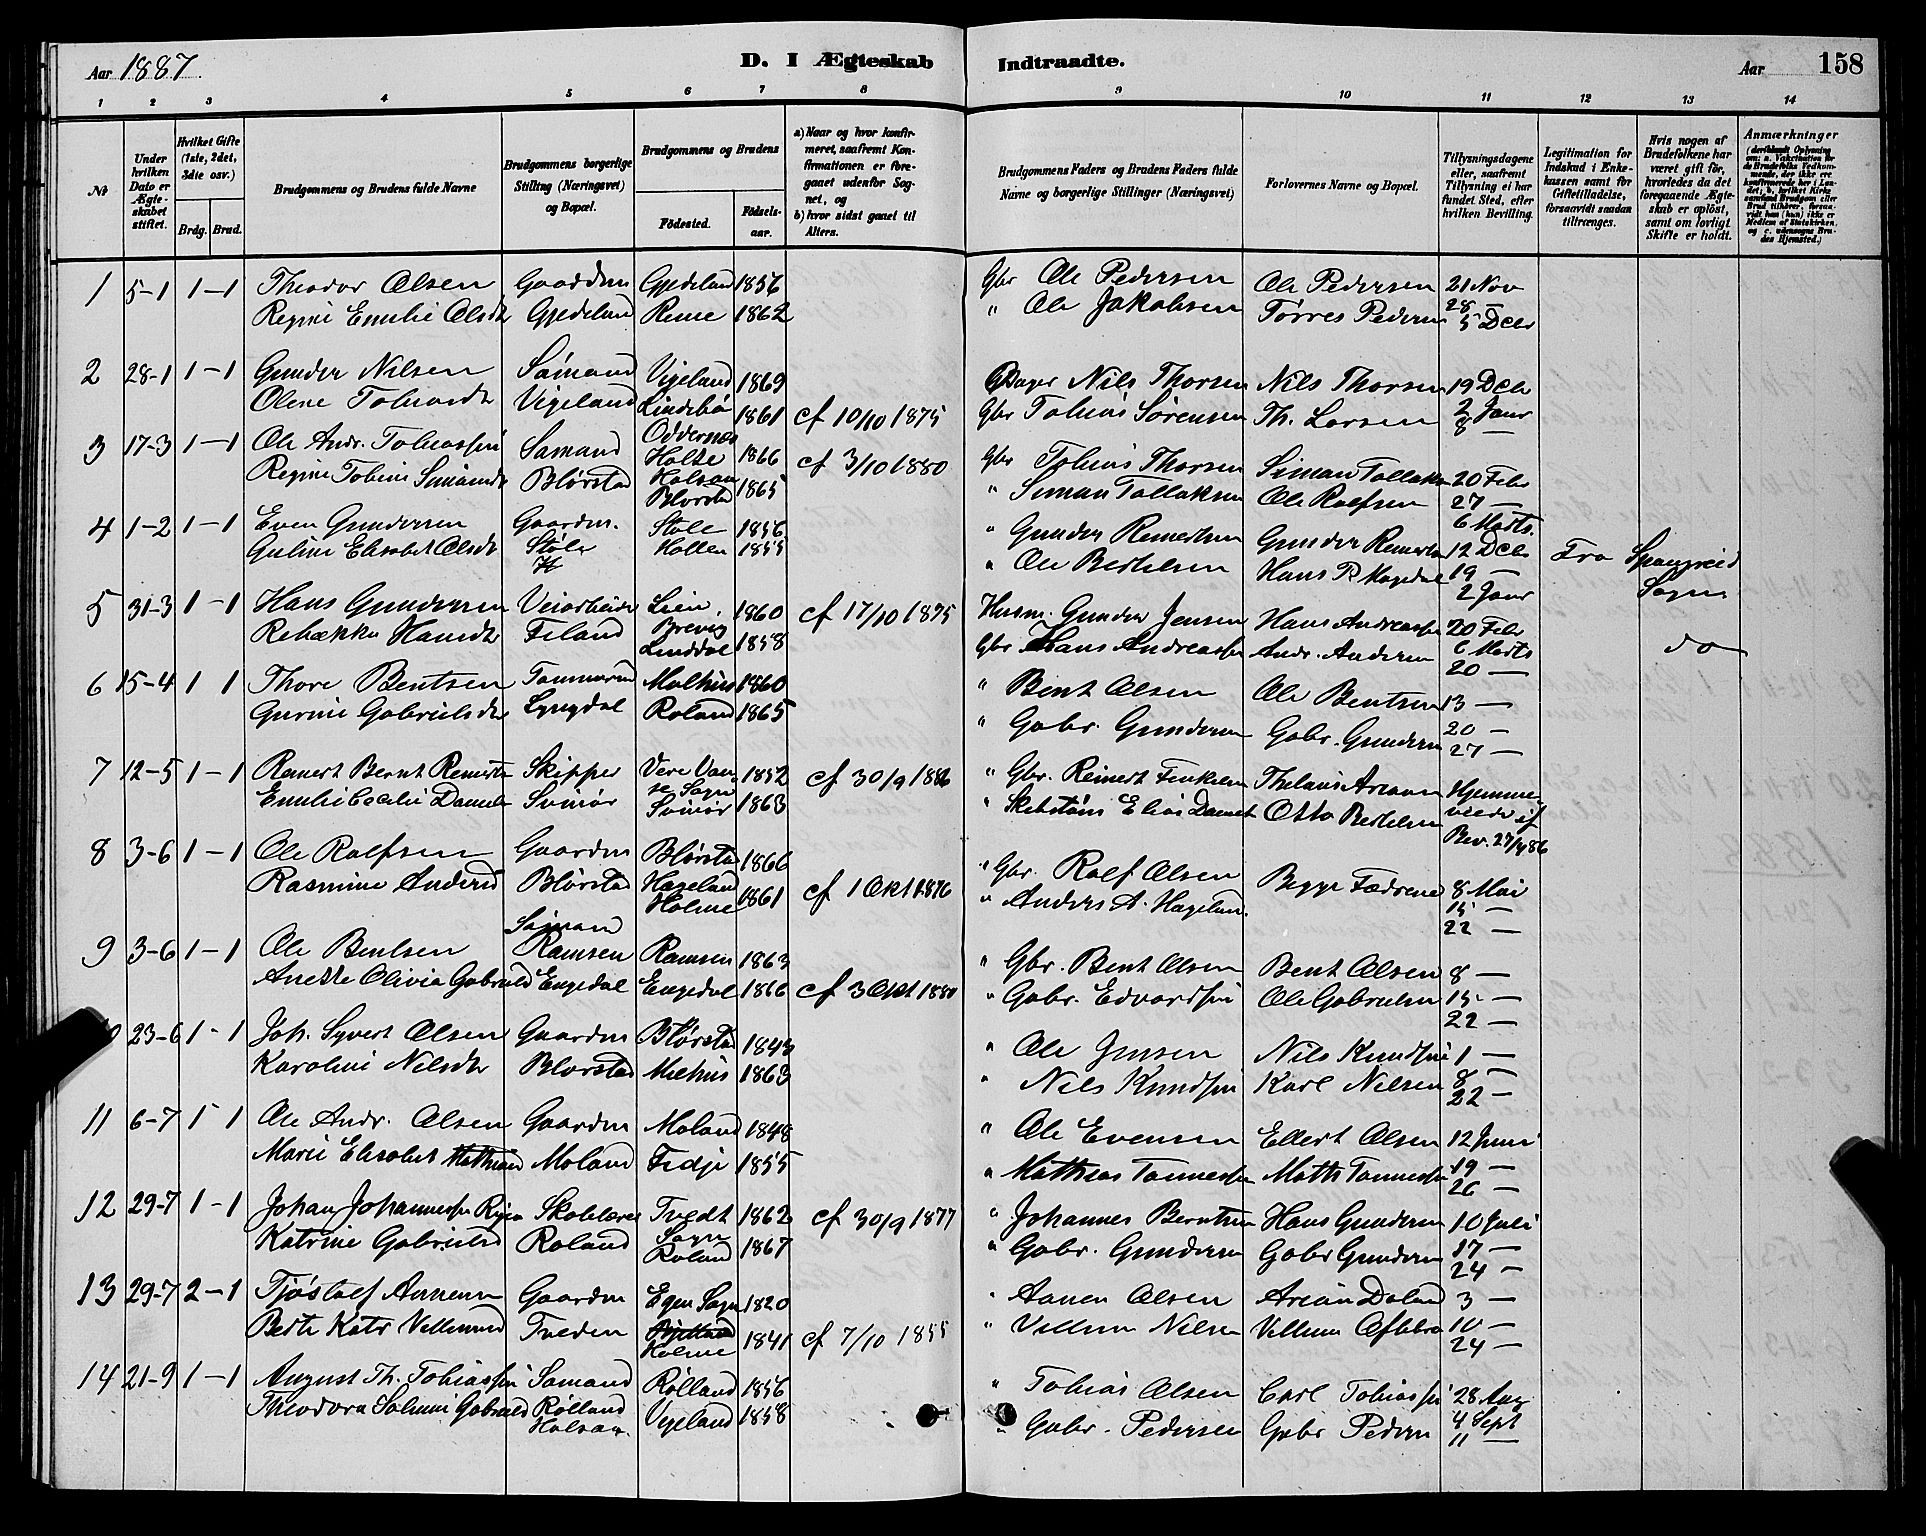 Aar 1887.
D. I Ægteskab Indtraadte.
Aar 158
1 2 3 4 5 6 7 8 9 10 11 12 13 14
№
Under hvilken Dato er Ægteskabet stiftet.
Hvilket Gifte (1ste, 2det, 3die osv.)
Brdg. Brud.
Brudgommens og Brudens fulde Navne
Brudgommens borgerlige Stilling (Næringsvei) og Bopæl.
Brudgommens og Brudens
Fødested.
Fødselsaar.
a) Naar og hvor konfirmeret, saafremt Konfirmationen er foregaaet udenfor Sognet, og
b) hvor sidst gaaet til Alters.
Brudgommens Faders og Brudens Faders fulde Navne og borgerlige Stillinger (Næringsvei)
Forlovernes Navne og Bopæl.
Tillysningsdagene eller, saafremt Tillysning ei har fundet Sted, efter hvilken Bevilling.
Legitimation for Indskud i Enkekassen samt for Giftetilladelse, forsaavidt saadan tiltrænges.
Hvis nogen af Brudefolkene har været gift før, hvorledes da det foregaaende Ægteskab er opløst, samt om lovligt Skifte er holdt.
Anmærkninger
1 5-1 1-1 Theodor Olsen Gaardm Gjedeland 1856 Gbr Ole Pedersen Ole Pedersen 21 Nov
Regine Emilie Olsdtr Gjedeland Reme 1862 " Ole Jakobsen Tørres Pedersen 28 —
5 Decbr
2 28-1 1-1 Gunder Nilsen Sømand Vigeland 1869 Nils Thorsen Nils Thorsen 19 Decbr
Olene Tobiasdtr Vigeland Lindebø 1861 cf 10/10 1875 Gbr Tobias Sørensen Th. Larsen 2 Janr
Oddernes 8 —
3 17-3 1-1 Ole Andr. Tobiassen Sømand Holte 1866 cf 3/10 1880 Gbr Tobias Thorsen Siman Tollaksen 20 Febr
Regine Tobine Simonsdtr Blørstad Holsaa 1865 " Siman Tollaksen Ole Rolfsen 27 —
Blørstad 6 Marts.
4 1-2 1-1 Even Gundersen Gaardm. Støle 1856 " Gunder Remertsen Gunder Remertsen 12 Decbr Fra Spangereid
Guline Elisabet Olsdtr Støle Hollen 1855 " Ole Bertelsen Hans P. Magedal 19 — Sogn
2 Janr
5 31-3 1-1 Hans Gundersen Veiarbeider Lien, 1860 cf 17/10 1875 Husm. Gunder Jensen Hans Andreassen 20 Febr
Brevig
Rebækka Hansdtr Feland Linddal 1858 Gbr Hans Andreassen Andr. Andersen 6 Marts do
20 —
6 15-4 1 1 Thore Bentsen Tømmermd Melhus 1860 " Bent Olsen Ole Bentsen 13 —
Gurine Gabrielsdtr Lyngdal Roland 1865 " Gabr. Gundersen Gabr. Gundersen 20 —
27 —
7 12-5 1-1 Remert Bernt Remerts Skipper Vere Van- 1852 cf 30/9 1886 " Gbr. Reinert Finkelsen Hjemme-
se Sogn
Emilie Cecilie Daniels Svinør Svinør 1863 " Elias Daniels Otto Bertelsen viede if
Bev. 27/4 86
8 3-6 1-1 Ole Rolfsen Gaardm Blørstad 1866 " Gbr. Rolf Olsen Begge Fædrene 8 Mai
Rasmine Andersd Blørstad Hageland 1861 cf 1 Okt 1876 " Anders A. Hageland. 15 —
Holme 22 —
Sømand
9 3-6 1-1 Ole Bentsen Ramsen Ramsen 1863 " Gbr. Bent Olsen Bent Olsen 8 —
Anette Olivia Gabrield Engedal Engedal 1866 cf 3 Okt 1880 " Gabr. Edvardsen Ole Gabrielsen 15 —
22 —
10 23-6 1-1 Joh. Syvert Olsen Gaardm Blørstad 1843 " Ole Jensen Nils Knudsen 1 —
Karoline Nilsdtr Blørstad Miehus 1863 " Nils Knudsen Karl Nilsen 8 —
22 —
11 6-7 1 1 Ole Andr. Olsen Gaardm Moland 1848 " Ole Evensen Ellert Olsen 12 Juni
Marie Elisabet Mathiasd Moland Fedje 1855 " Mathias Tønnessen Maths Tønnessen 19 —
26 —
12 29-7 1-1 Johan Johannessen Skolelærer Tvedt 1862 cf 30/9 1877 " Johannes Berntsen Hans Gundersen 10 Juli
Sogn
Katrine Gabrielsd Roland Roland 1867 " Gabr. Gundersen Gabr Gundersen 17 —
24 —
13 29-7 2-1 Tjøstolf Aanensen Gaardm Egen Sogn 1820 " Aanen Olsen Arian Daland 3 —
Berte Katr Villumsd Tveden Holme 1841 cf 7/10 1855 " Villum Nilsen Villum 10 —
24 —
14 21-9 1-1 August Th. Tobiassen Sømand Rølland 1856 " Tobias Olsen Carl Tobiassen 28 Aug
Theodora Saline Gabrield Rølland Vigeland 1858 " Gabr. Pedersen Gabr Pedersen 4 Sept
Holsaa. 11 —